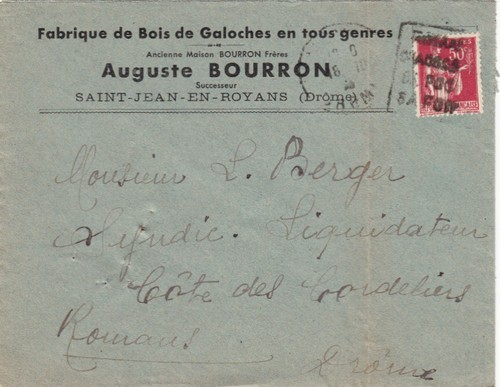 Fabrique de Bois de Galoches en tous genres
Ancienne Maison BOURRON Frères
Auguste BOURRON
Successeur
SAINT-JEAN-EN-ROYANS (Drôme)
50c
Monsieur L. Berger
Syndic. Liquidateur
Côte des Cordeliers
Romans
Drôme